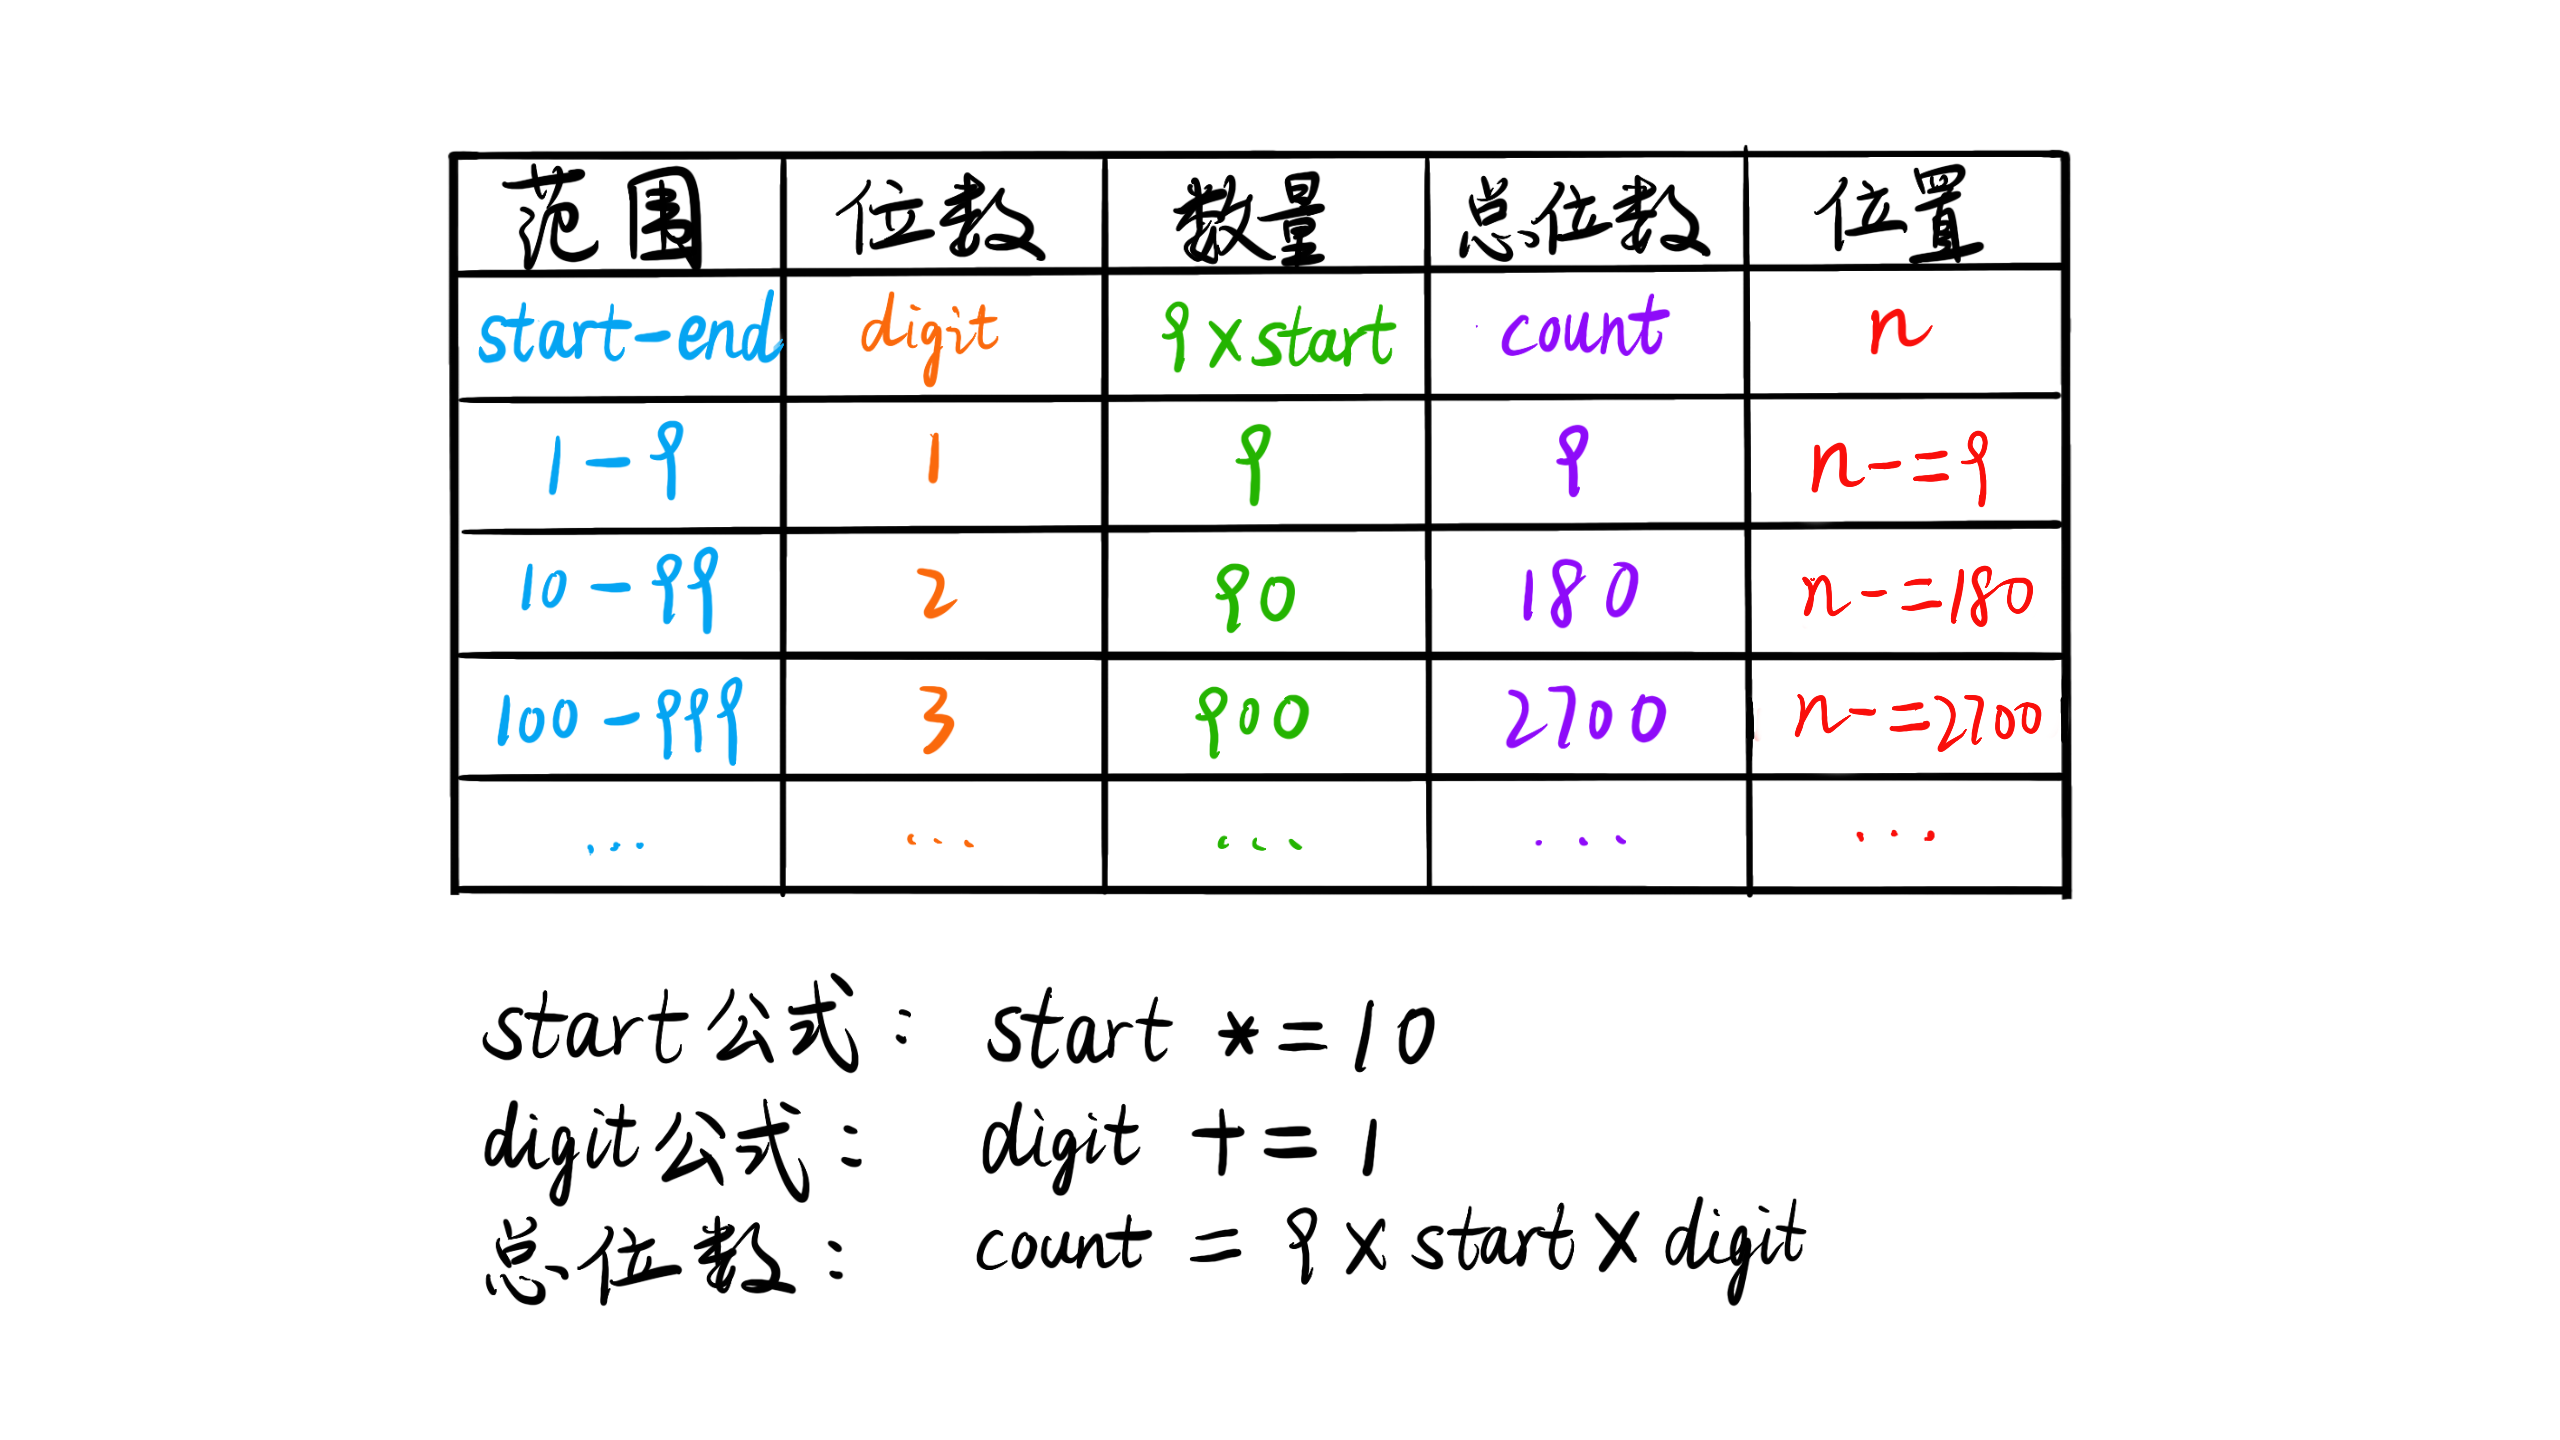 范围 位数 数量 总位数 位置
start-end digit 9×start count n
1-9 1 9 9 n-=9
10-99 2 90 180 n-=180
100-999 3 900 2700 n-=2700
... ... ... ... ...
start公式: start *=10
digit公式: digit += 1
总位数: count = 9×start×digit